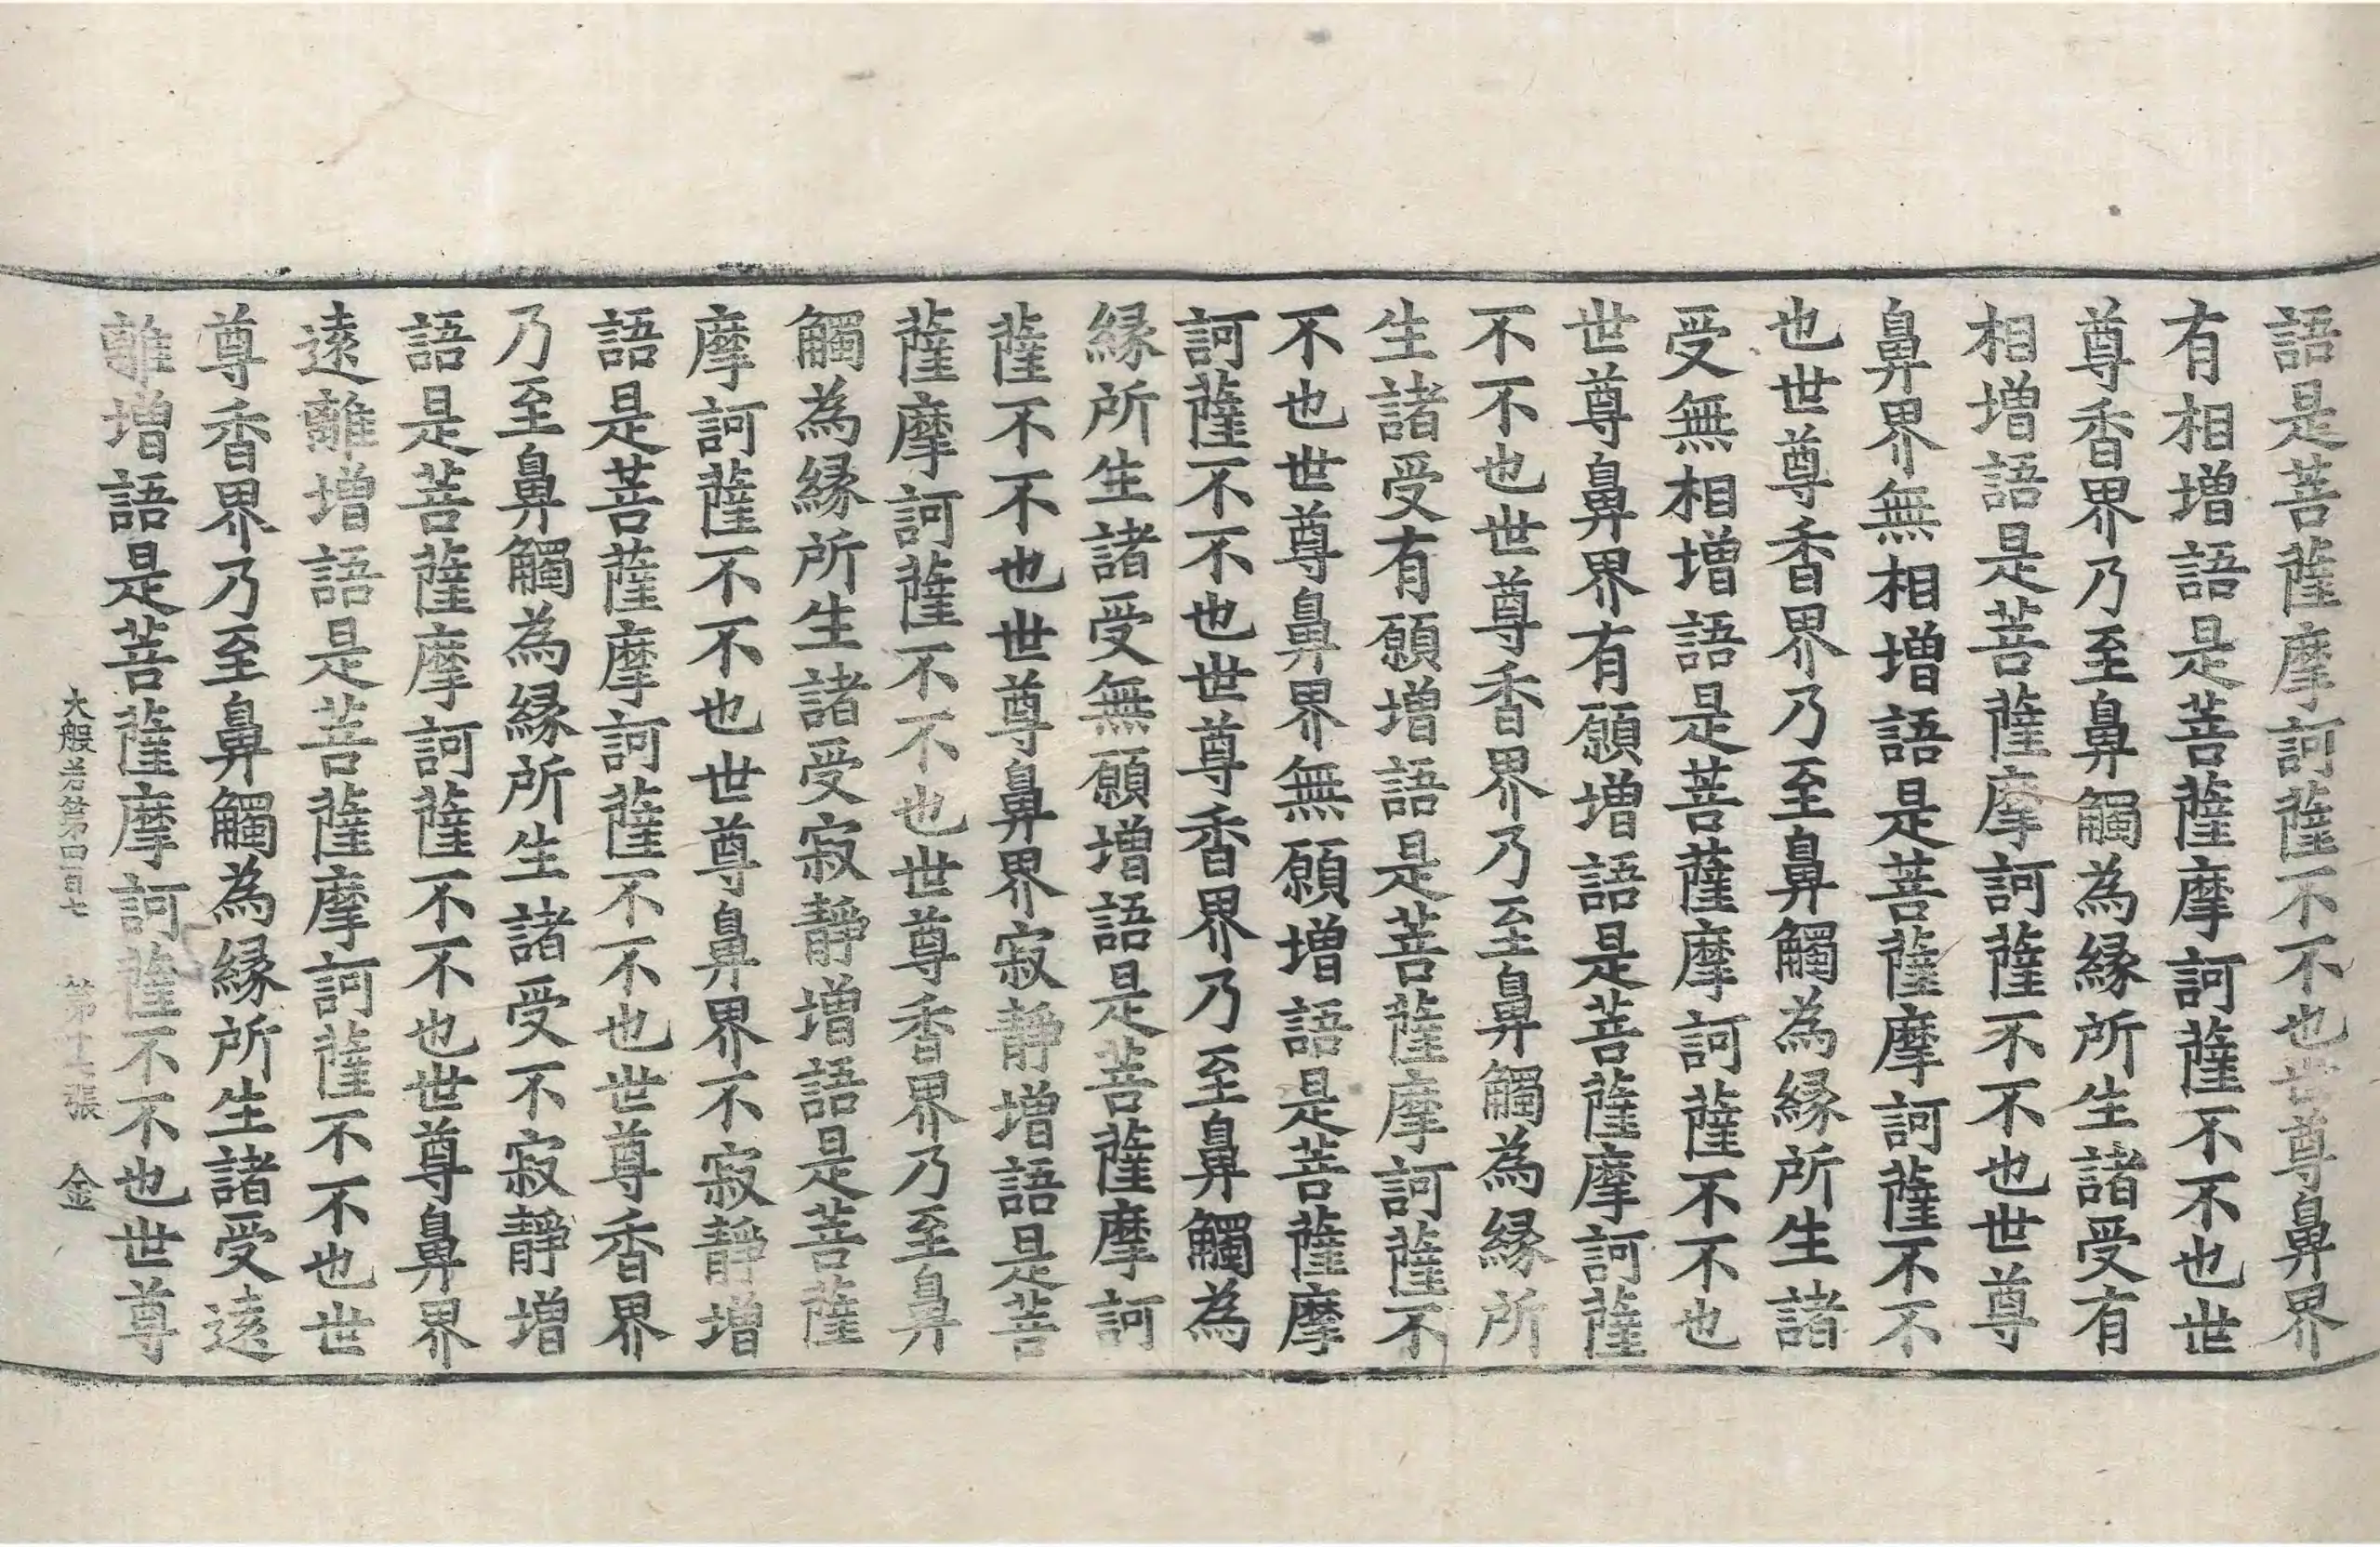 語是菩薩摩訶薩不不也世尊鼻界
有相增語是菩薩摩訶薩不不也世
尊香界乃至鼻觸為縁所生諸受有
相增語是菩薩摩訶薩不不也世尊
鼻界無相增語是菩薩摩訶薩不不
也世尊香界乃至鼻觸為縁所生諸
受無相增語是菩薩摩訶薩不不也
世尊鼻界有願增語是菩薩摩訶薩
不不也世尊香界乃至鼻觸為縁所
生諸受有願增語是菩薩摩訶薩不
不也世尊鼻界無願增語是菩薩摩
訶薩不不也世尊香界乃至鼻觸為
縁所生諸受無願增語是菩薩摩訶
薩不不也世尊鼻界寂靜增語是菩
薩摩訶薩不不也世尊香界乃至鼻
觸為縁所生諸受寂靜增語是菩薩
摩訶薩不不也世尊鼻界不寂靜增
語是菩薩摩訶薩不不也世尊香界
乃至鼻觸為縁所生諸受不寂靜增
語是菩薩摩訶薩不不也世尊鼻界
遠離增語是菩薩摩訶薩不不也世
尊香界乃至鼻觸為縁所生諸受遠
離增語是菩薩摩訶薩不不也世尊
大般若第四百七 第十 張 金